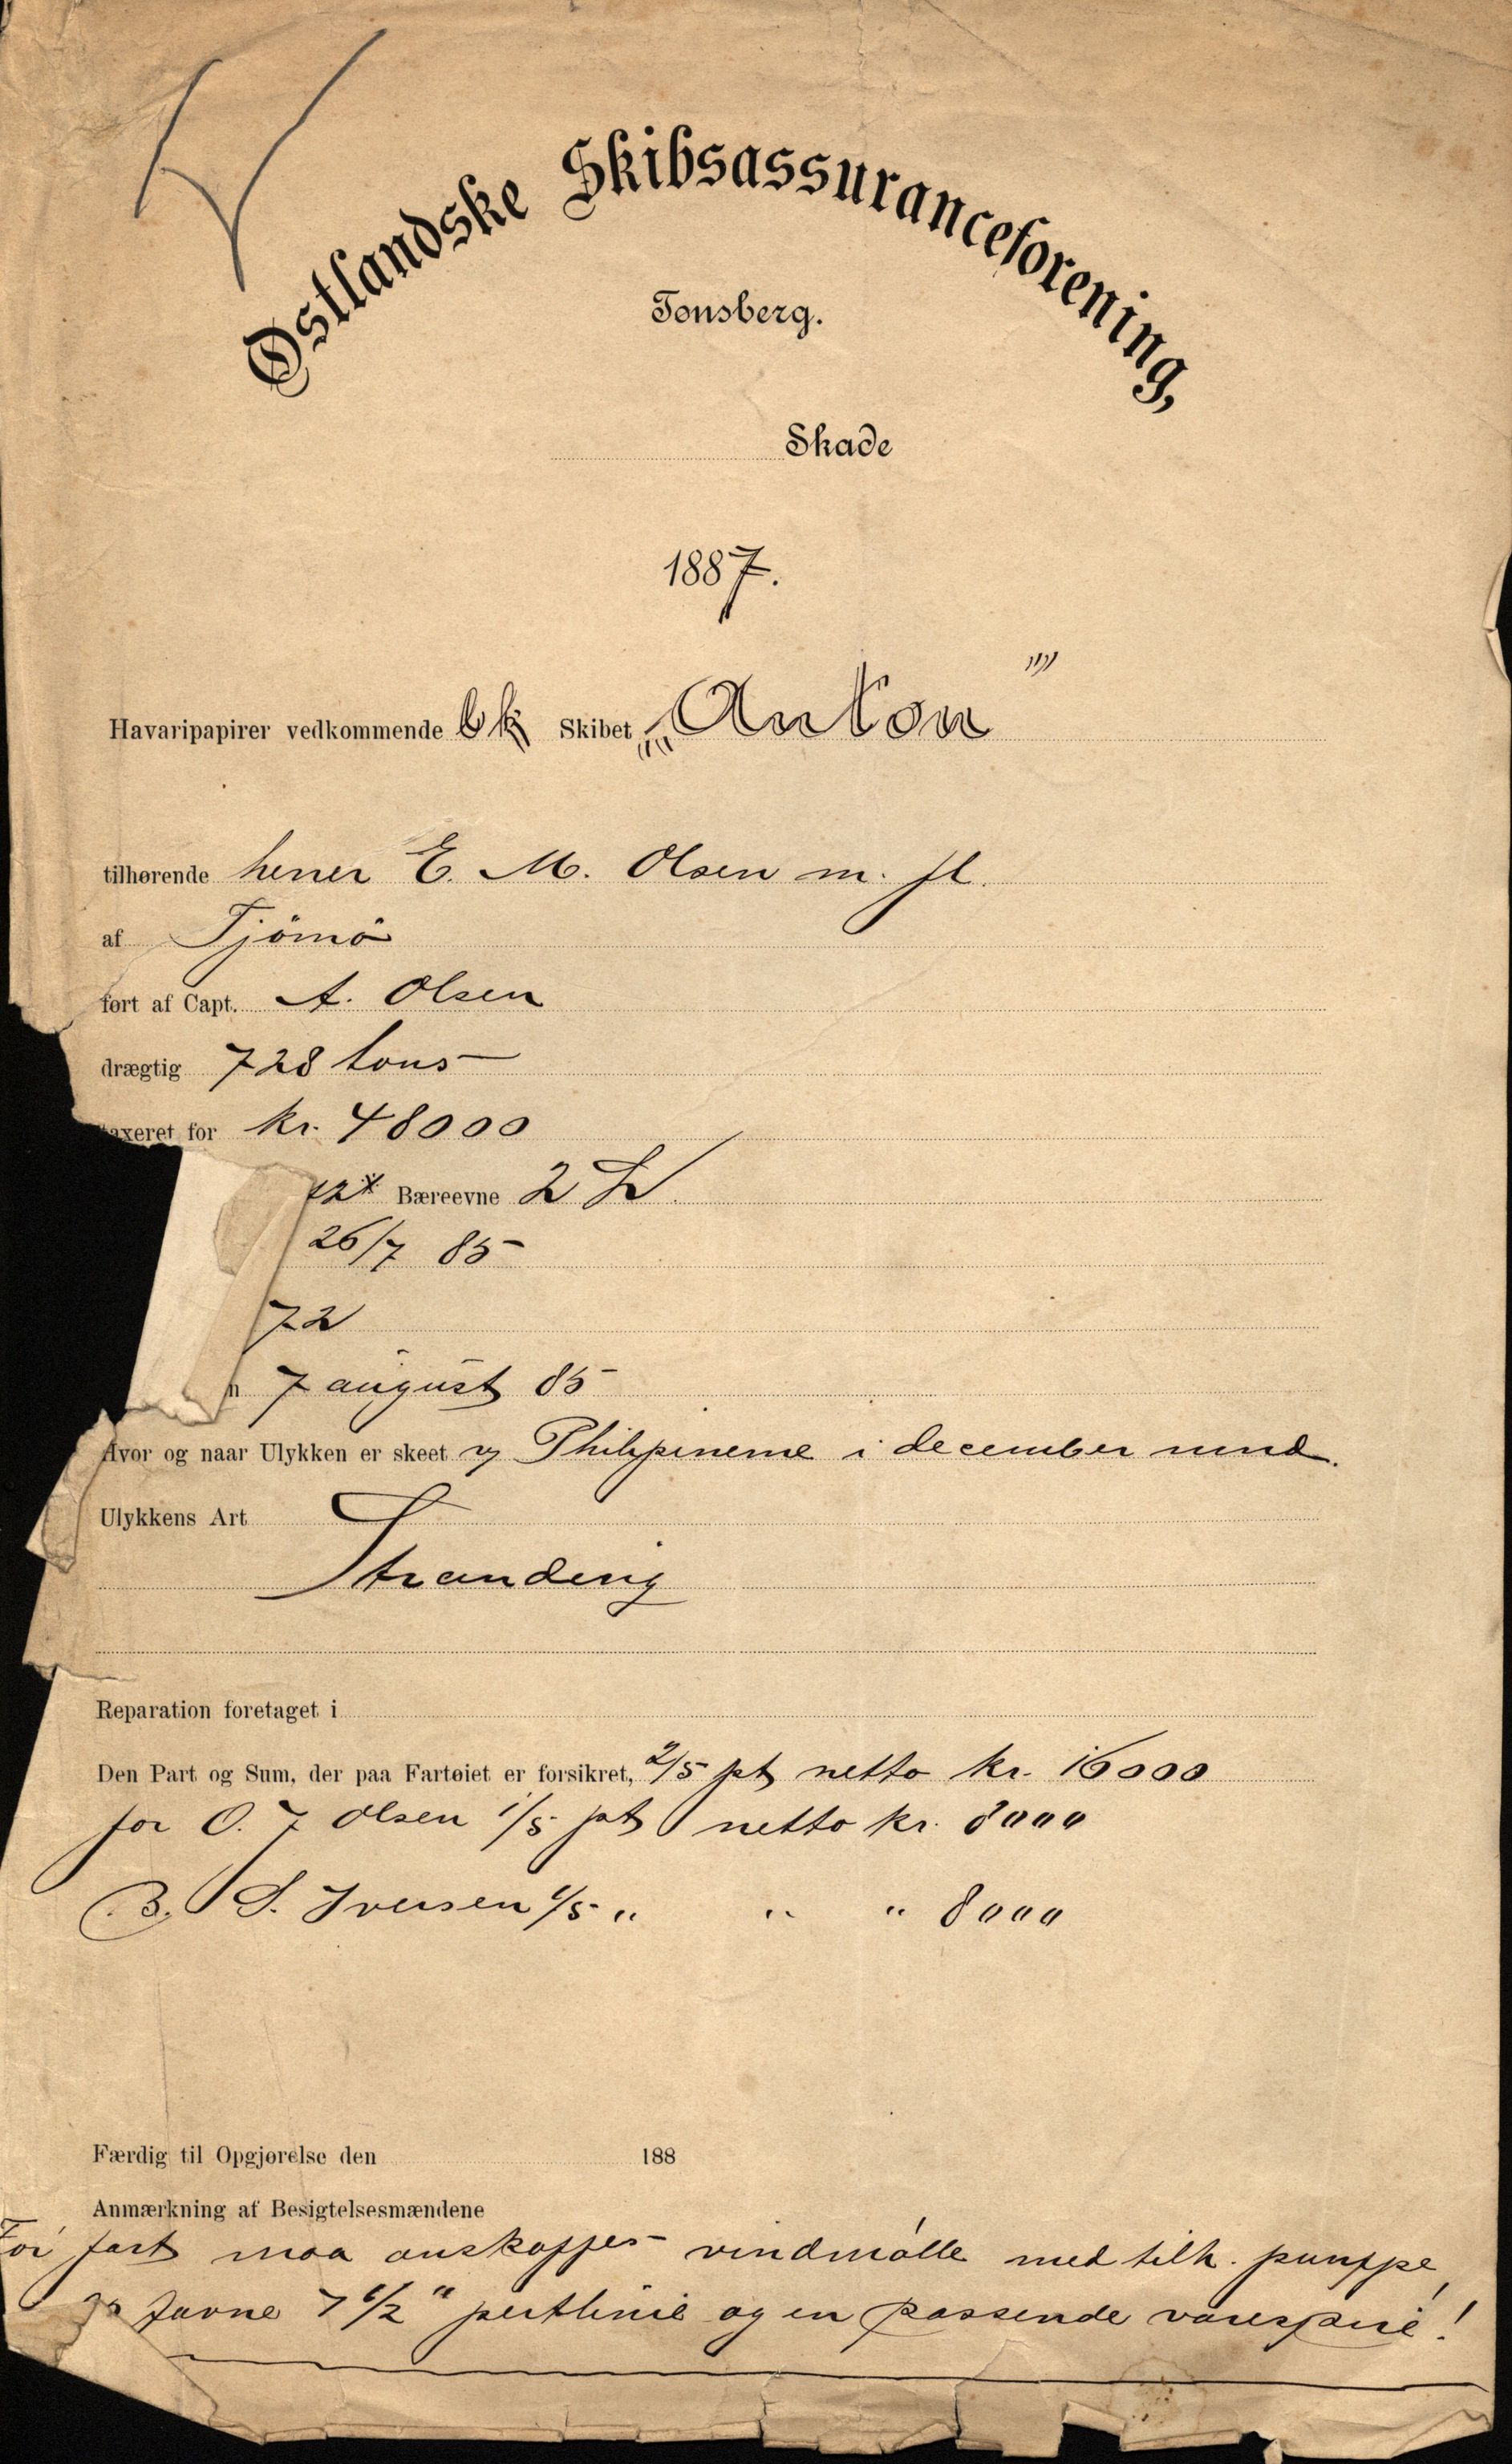 Østlandske Skibsassuranceforening,
Tønsberg.
Skade
1887.
Havaripapirer vedkommende bk Skibet „Anton"
tilhørende herrer E. M. Olsen m. fl.
af Tjömö
ført af Capt. A. Olsen
drægtig 728 tons
taxeret for kr. 48000
Bæreevne 2
26/7 85
72
n 7 august 85
Hvor og naar Ulykken er skeet v/ Philipinerne i december mnd.
Ulykkens Art
Stranding
Reparation foretaget i
Den Part og Sum, der paa Fartøiet er forsikret, 2/5 pt netto kr. 16000
for O. J Olsen 1/5 pt netto kr. 8000
B. S. Iversen 1/5 " " " 8000
Færdig til Opgjørelse den 188
Anmærkning af Besigtelsesmændene
För fart maa anskaffes vindmölle med tilh. pumppe,
favne 7 1/2" pertlinie og en passende varespire!